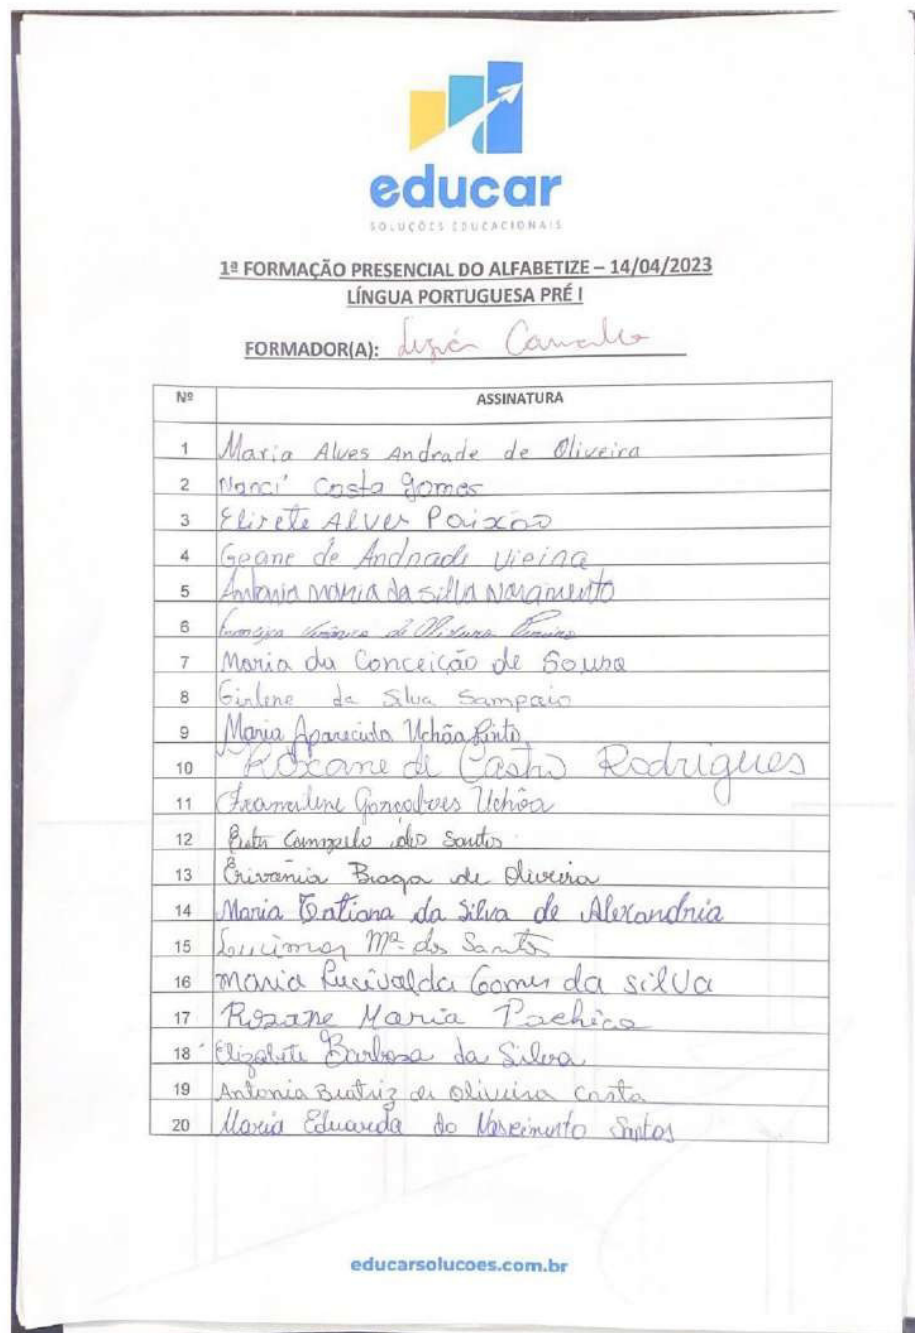 educar
SOLUÇÕES EDUCACIONAIS
1ª FORMAÇÃO PRESENCIAL DO ALFABETIZE – 14/04/2023
LÍNGUA PORTUGUESA PRÉ I
FORMADOR(A):
Nº ASSINATURA
1 Maria Alves Andrade de Oliveira
2 Nanci Costa Gomes
3 Elisete Alves Paixão
4 Geane de Andrade Vieira
5 Antonia Maria da Silva
6 de Oliveira
7 Maria da Conceição de Sousa
8 Girlene da Silva Sampaio
9 Maria Aparecida Uchôa Pinto
10 Roxane de Castro Rodrigues
11 Gonçalves Uchôa
12 dos Santos
13 Erivania Braga de Oliveira
14 Maria Tatiana da Silva de Alexandria
15 Lucimar Mª dos Santos
16 Maria Lucivalda Gomes da Silva
17 Rozane Maria Pacheco
18 Elizabete Barbosa da Silva
19 Antonia Beatriz de Oliveira Costa
20 Maria Eduarda do Nascimento Santos
educarsolucoes.com.br